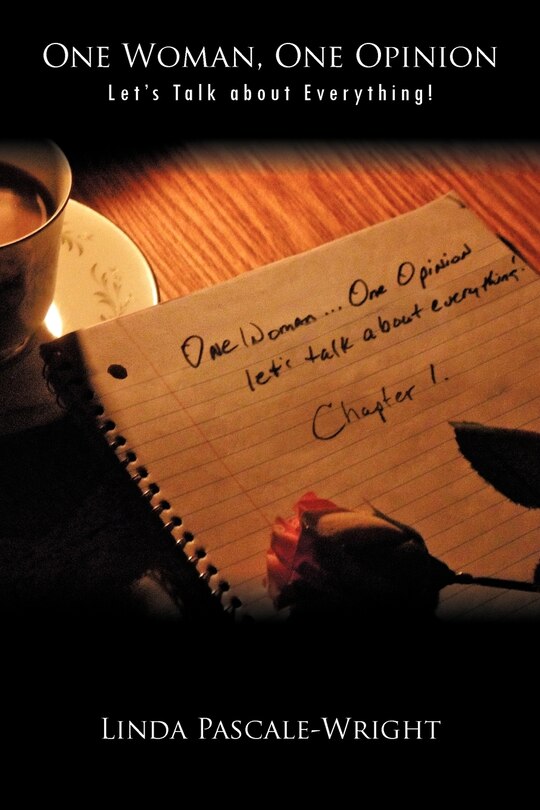 One Woman, One Opinion
Let's Talk about Everything!
One Woman... One Opinion
let's talk about everything!
Chapter 1.
Linda Pascale-Wright